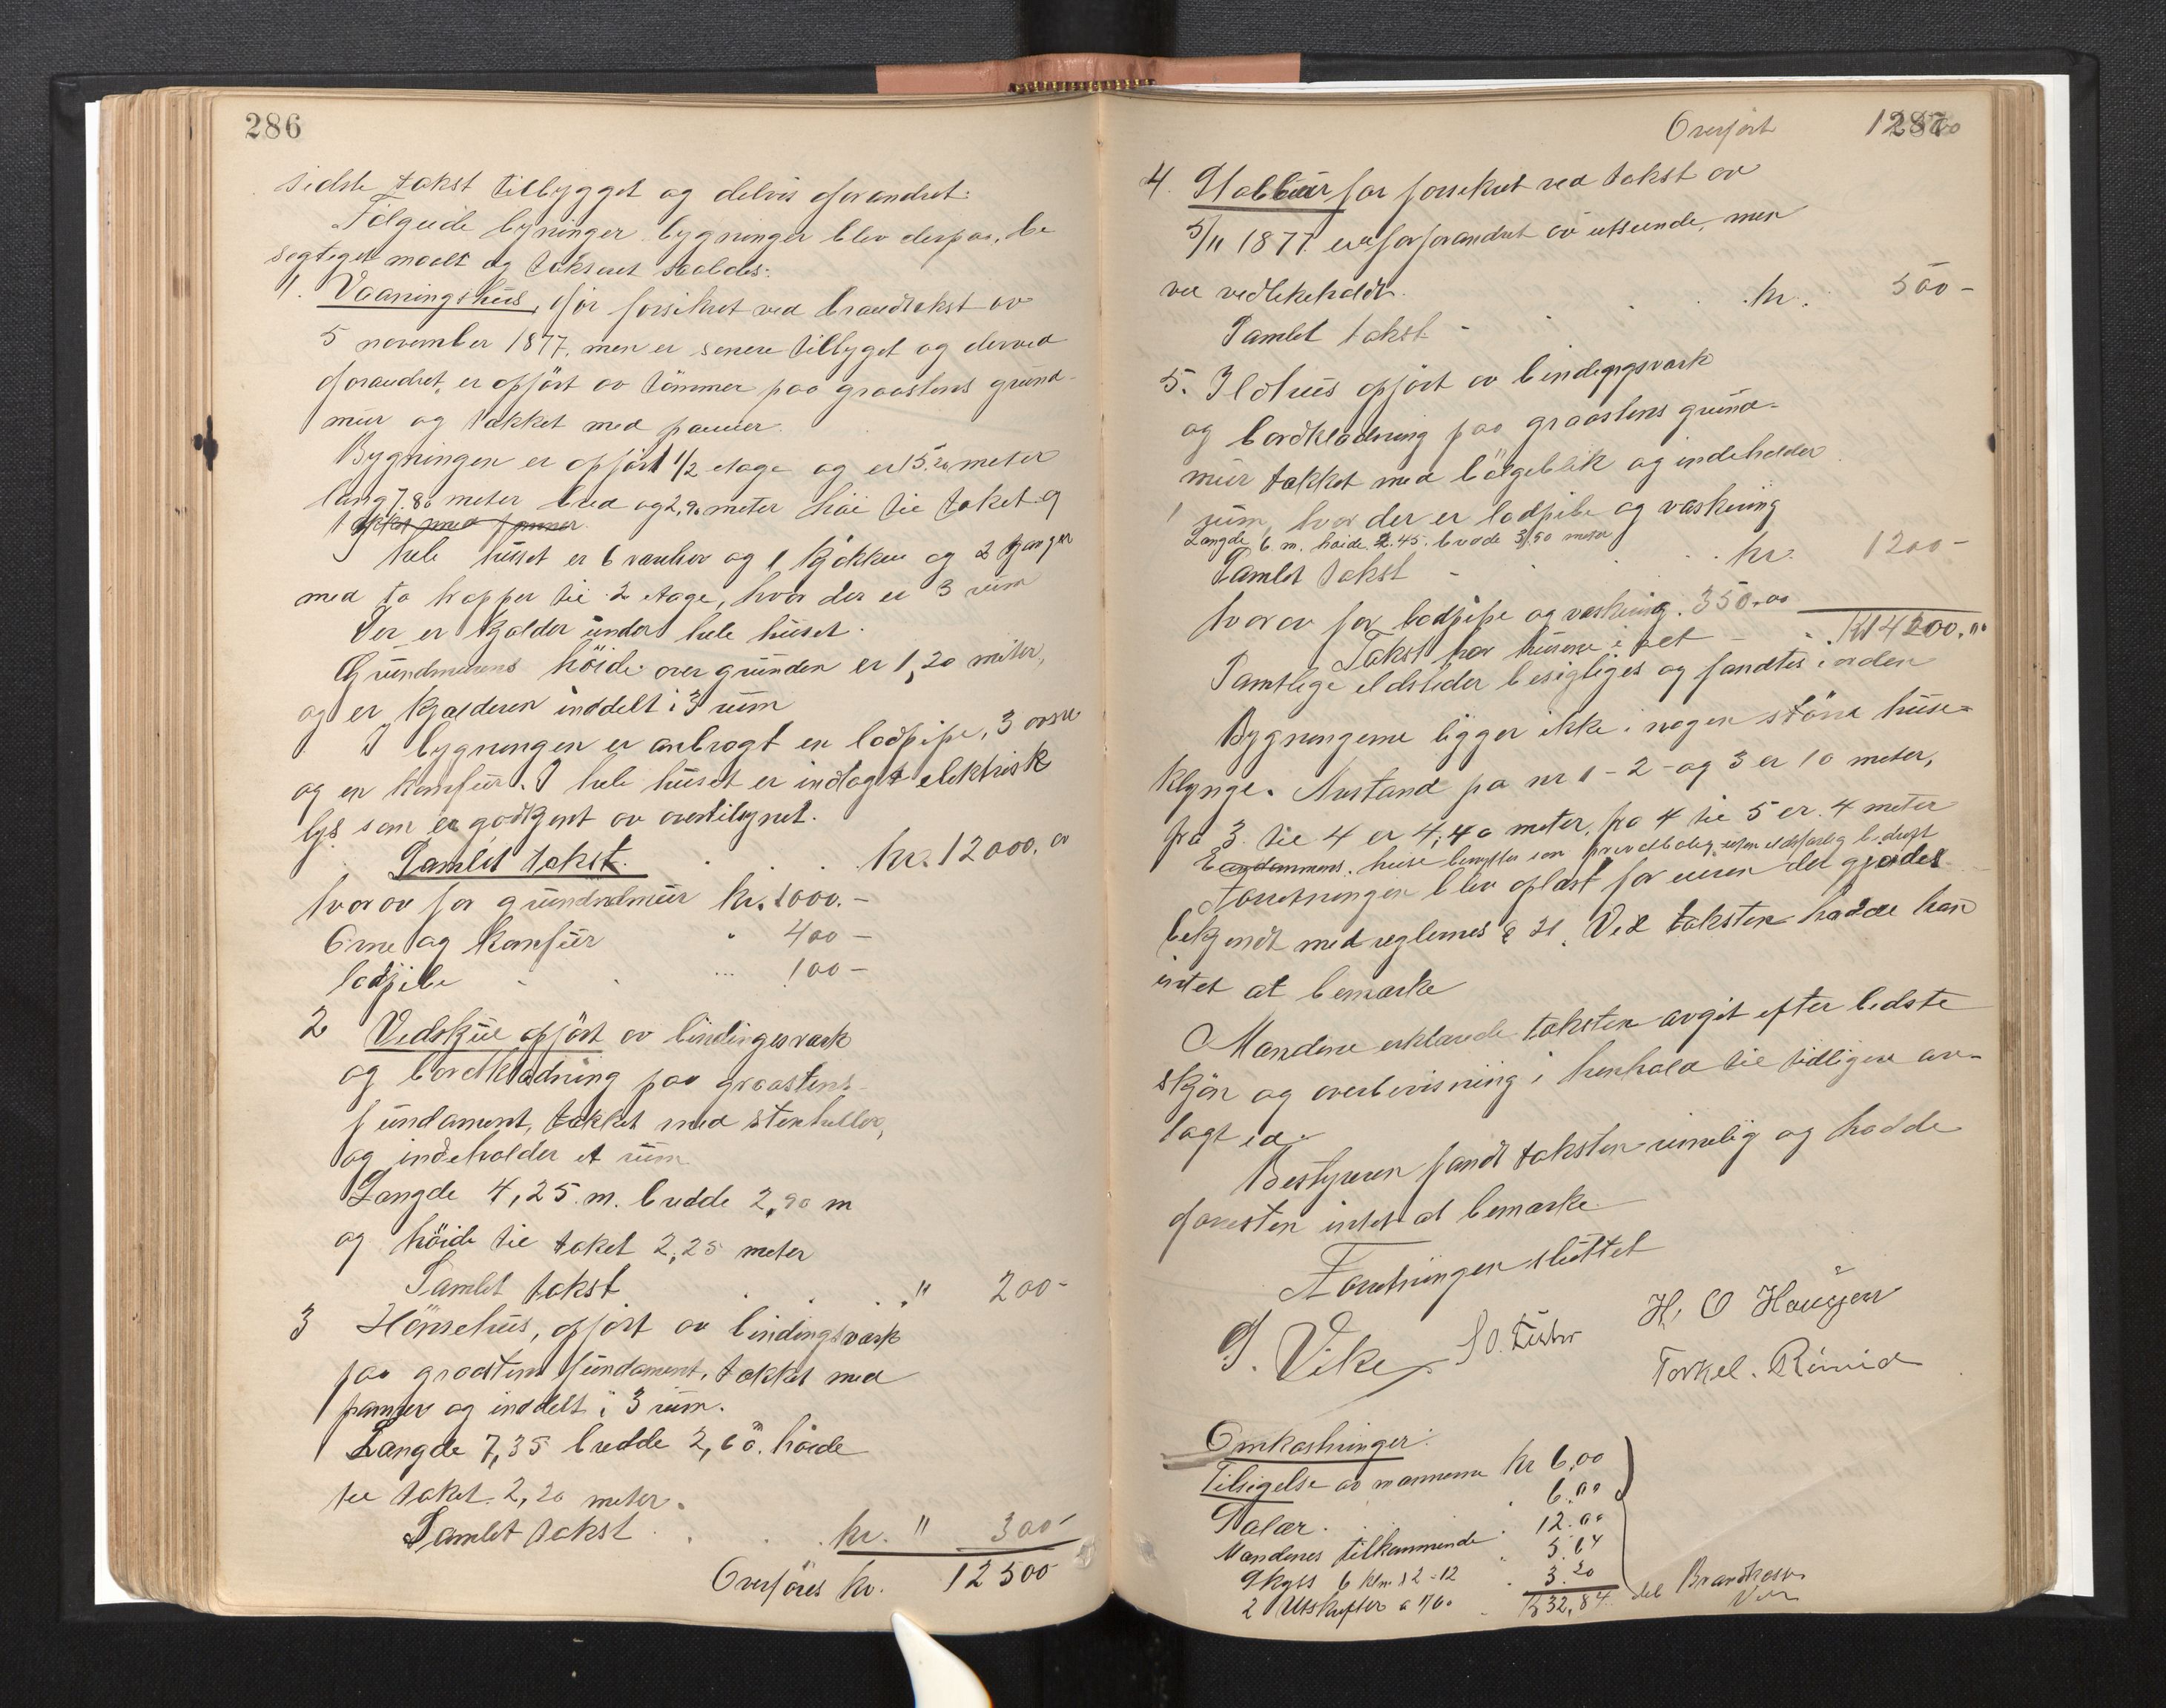 286
sidste takst tilbygget og delvis forandret.
Følgende bygninger bygninger blev derpaa, be
sigtiget maalt og takseret saaledes:
1. Vaaningshus, før forsikret ved brandtakst av
5 november 1877, men er senere tilbyget og derved
forandret, er opført av tømmer paa graastens grund-
mur og tækket med panner.
Bygningen er opført 1/2 etage og er 15.20 meter
lang 7.80 meter bred og 2,90 meter høi til taket. I
hele huset er 6 værelser og 1 kjøkken og 2 ganger
med to trapper til 2 etage, hvor der er 3 rum
Der er kjælder under hele huset.
Grundmurens høide over grunden er 1,20 meter,
og er kjælderen inddelt i 3 rum
I bygningen er anbragt en lodpipe, 3 ovne
og en komfur. I hele huset er indlagt elektrisk
lys som er godkjent av overtilsynet.
Samlet takst. kr. 12000,00
hvorav for grundmur kr. 1000.-
Ovne og komfur " 400-
lodpibe 100-
2 Vedskjul opført av bindingsværk
og bordklædning paa graastens
fundament, tækket med stenheller,
og indeholder et rum
Længde 4,25 m. bredde 2,90 m
og høide til taket 2,25 meter
Samlet takst " 200-
3 Hønsehus, opført av bindingsværk
paa graasten fundament, tækket med
panner og inddelt i 3 rum.
Længde 7,35 bredde 2,60. høide
til taket. 2,20 meter.
Samlet takst kr. " 300-
Overføres kr. 12500
Overført 12500
287
4. Stabbur før forsikret ved takst av
5/11 1877. er uforandret av utseende, men
vel vedlikeholdt. kr. 500-
Samlet takst
5. Ildhus opført av bindingsværk
og bordklædning paa graastens grund-
mur tækket med bølgeblik og indeholder
1 rum, hvor der er lodpibe og vaskeing
Længde 6 m. høide 2.45. bredde 3,50 meter
Samlet takst kr. 1200-
hvorav for lodpipe og vaskeing. 350.00
Takst for husene i alt Kr 14200,00
Samtlige ildsteder besigtiges og fandtes i orden
Bygningerne ligger ikke i nogen større huse-
klynge. Avstand fra nr 1-2- og 3 er 10 meter,
fra 3 til 4 er 4,40 meter, fra 4 til 5 er 4 meter
Eiendommens huse benyttes som privatbolig uten ildsfarlig bedrift
Forretningen blev oplæst for eieren der gjordes
bekjendt med reglernes § 21. Ved taksten hadde han
intet at bemærke
Mændene erklærede taksten avgit efter bedste
skjøn og overbevisning i henhold til tidligere av-
lagt ed.
Bestyreren fandt taksten rimelig og hadde
foresten intet at bemærke.
Forretningen sluttet
H. O Haugen
Vike
Torkel.
Omkostninger:
Tilsigelse av mænnerne kr 6,00
Salær. 6.00
Mændenes tilkommende 12.00
Skyss 6 klm. 12-12 5.64
2 Utskrifter a 1/60 3.20
Kr 32,84